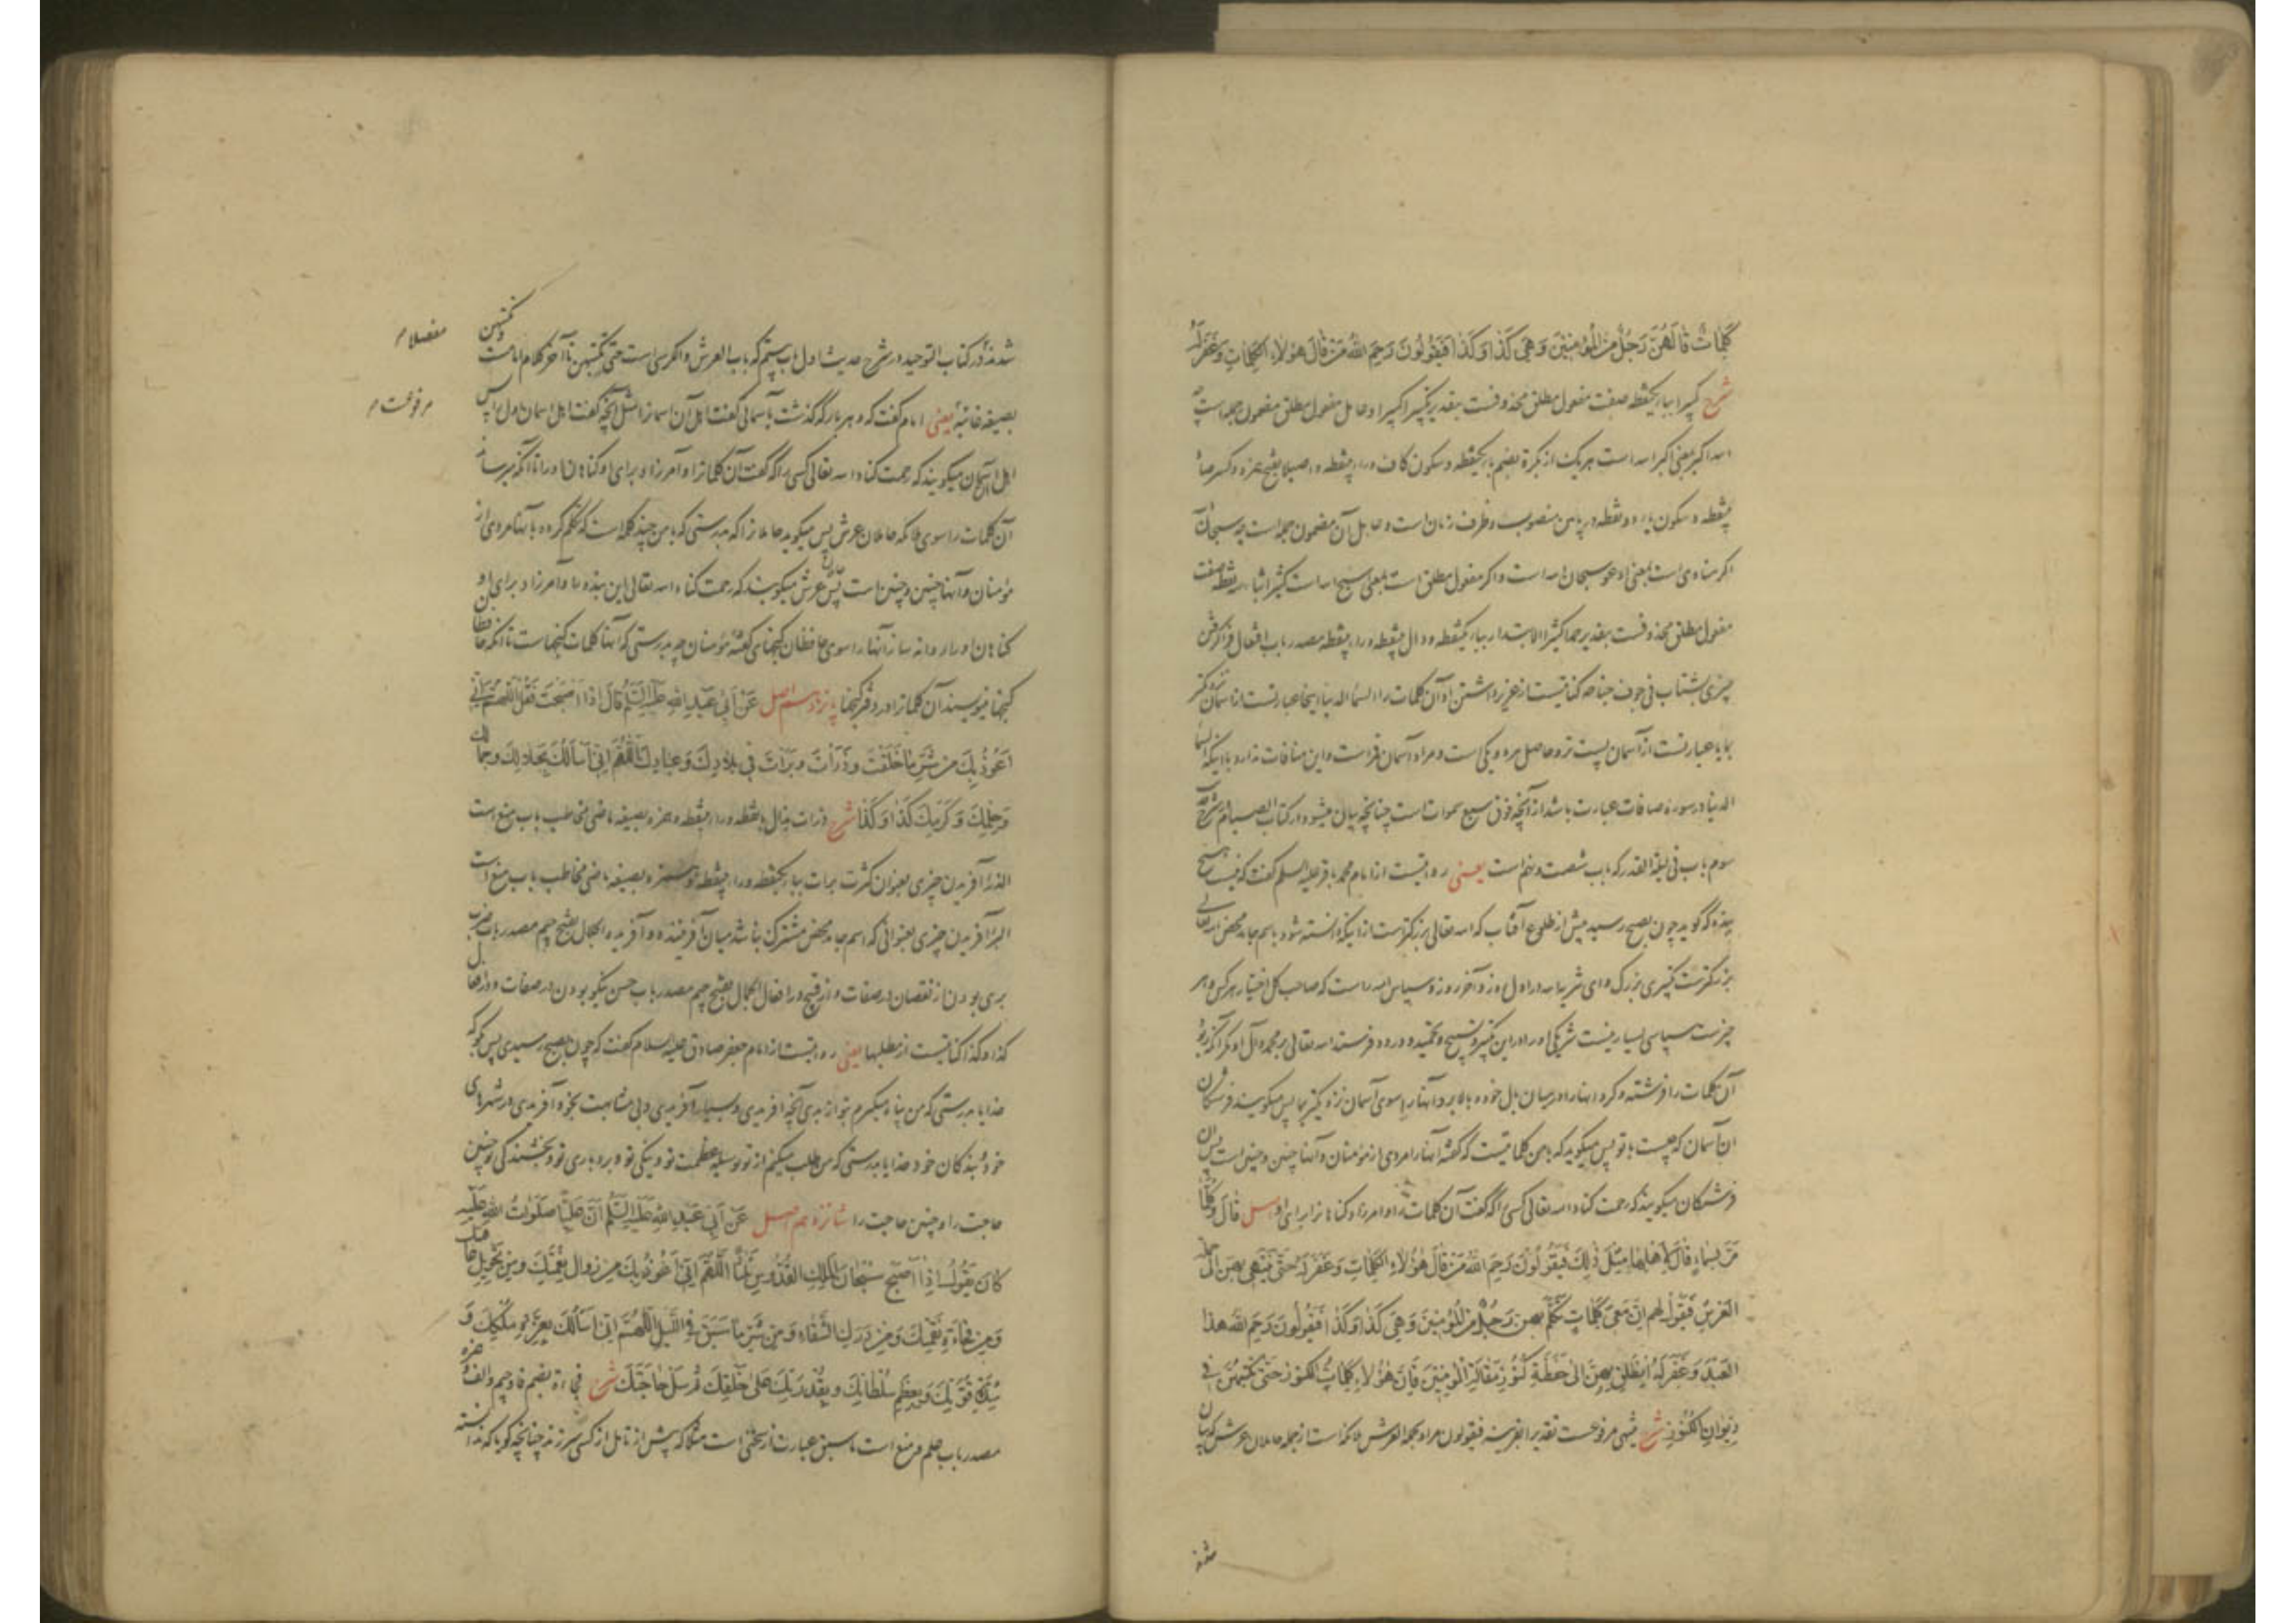 كَلِمَاتٌ قَالَهُنَّ رَجُلٌ مِنَ الْمُؤْمِنِينَ وَهِيَ كَذَا وَكَذَا فَيَقُولُونَ رَحِمَ اللهُ مَنْ قَالَ هٰؤُلَاءِ الْكَلِمَاتِ وَغَفَرَ لَهُ
شرح کبیرا ببا یکنقطه صفت مفعول مطلق محذوفست بتقدیر تکبیرا کبیرا و عامل مفعول مطلق مضمون جمله است چه
الله اکبر بمعنی اکبر الله است بهر یک از بکرة بضم با یکنقطه و سکون کاف و راء بینقطه و اصیلا بفتح همزه و کسر صاد
بینقطه و سکون یاء دو نقطه در پایین منصوب و ظرف زمان است و عامل آن مضمون جمله است چه سبحان
اگر منادی است بمعنی ادعو سبحان الله است و اگر مفعول مطلق است بمعنی اسبح الله است کثیرا بثاء سه نقطه صفت
مفعول مطلق محذوفست بتقدیر حمدا کثیرا الابتدار ببا یکنقطه و دال بینقطه و راء بینقطه مصدر باب افتعال فرا گرفتن
چیزی بشتاب فی جوف جناحه کنایتست از عزیز داشتن او آن کلمات را السماء الدنیا اینجا عبارتست از آسمان نزدیکتر
بما یا عبارتست از آسمان پست تر و حاصل هر دو یکی است و مراد آسمان قمر است و این منافات ندارد با اینکه السماء
الدنیا در سوره صافات عبارت باشد از آنچه فوق سبع سموات است چنانچه بیان میشود در کتاب الصیام در شرح حدیث
سوم باب فی لیلة القدر که باب شصت و نهم است یعنی روایتست از امام محمد باقر علیه السلم گفت که نیست هیچ
بنده که گوید چون بصبح رسید پیش از طلوع آفتاب که الله تعالی بزرگترست از اینکه دانسته شود باسم جامد محض الله تعالی
بزرگترست تکبیری بزرگ و ای تنزیه الله در اول روز و آخر روز و سپاس الله راست که صاحب کل اختیار هر کس و هر
چیزست سپاسی بسیار نیست شریکی او را در این تکبیر و تسبیح و تحمید و درود فرستد الله تعالی بر محمد و آل او مگر آنکه زود
آن کلمات را فرشته و کرد انها را در میان بال خود و بالا برد آنها را بسوی آسمان نزدیکتر بما پس میگویند فرشتگان
آن آسمان که چیست با تو پس میگوید که با من کلماتیست که گفته آنها را مردی از مؤمنان و آنها چنین و چنین است پس آن
فرشتگان میگویند که رحمت کناد الله تعالی کسی را که گفت آن کلمات را و آمرزاد گناهان را برای او اصل قَالَ وَكُلَّمَا
مَرَّ بِسَمَاءٍ قَالَ لِأَهْلِهَا مِثْلَ ذٰلِكَ فَيَقُولُونَ رَحِمَ اللهُ مَنْ قَالَ هٰؤُلَاءِ الْكَلِمَاتِ وَغَفَرَ لَهُ حَتّٰى يَنْتَهِيَ بِهِنَّ إِلٰى حَمَلَةِ
الْعَرْشِ فَيَقُولُ لَهُمْ إِنَّ مَعِيَ كَلِمَاتٍ تَكَلَّمَ بِهِنَّ رَجُلٌ مِنَ الْمُؤْمِنِينَ وَهِيَ كَذَا وَكَذَا فَيَقُولُونَ رَحِمَ اللهُ هٰذَا
الْعَبْدَ وَغَفَرَ لَهُ انْطَلِقْ بِهِنَّ إِلٰى حَفَظَةِ كُنُوزِ مَقَالَةِ الْمُؤْمِنِينَ فَإِنَّ هٰؤُلَاءِ كَلِمَاتُ الْكُنُوزِ حَتّٰى تَكْتُبَهُنَّ فِي
دِيوَانِ الْكُنُوزِ شرح ینتهی مرفوعست بقرینه فیقولون مراد بحملة العرش ملائکه است از جمله حاملان عرش که بیان
شدند
شدند در کتاب التوحید در شرح حدیث اول باب بیستم که باب العرش و الکرسی است حتی تکتبهن تا آخر کلام امامست وتکتبهن
مفصلا
بصیغه غائبه یعنی امام گفت که و هر بار که گذشت بآسمانی گفت اهل آن آسمان را مثل آنچه گفت اهل آسمان اول را پس
مرفوعست
اهل آن آسمان میگویند که رحمت کناد الله تعالی کسی را که گفت آن کلمات را و آمرزاد برای او گناهان او را تا آنکه میرساند
آن کلمات را سوی ملائکه حاملان عرش پس میگوید حاملان را که بدرستی که با من چند کلمه است که تکلم کرده بآنها مردی از
مؤمنان و آنها چنین و چنین است پس حاملان عرش میگویند که رحمت کناد الله تعالی این بنده را و آمرزاد برای او
گناهان او را روانه ساز آنها را سوی حافظان گنجهای گفته مؤمنان چه بدرستی که آنها کلمات گنجهاست تا آنکه حافظان
گنجها بنویسند آن کلمات را در دفتر گنجها پانزدهم اصل عَنْ أَبِي عَبْدِ اللهِ عَلَيْهِ السَّلَمُ قَالَ إِذَا أَصْبَحْتَ فَقُلِ اللّٰهُمَّ إِنِّي
أَعُوذُ بِكَ مِنْ شَرِّ مَا خَلَقْتَ وَذَرَأْتَ وَبَرَأْتَ فِي بِلَادِكَ وَعِبَادِكَ اللّٰهُمَّ إِنِّي أَسْأَلُكَ بِجَلَالِكَ وَجَمَالِكَ
وَحِلْمِكَ وَكَرَمِكَ كَذَا وَكَذَا شرح ذرات بذال بانقطه و راء بینقطه و همزه بصیغه ماضی مخاطب باب منع است
الذرء آفریدن چیزی بعنوان کثرت برات بباء یکنقطه و راء بینقطه و همزه بصیغه ماضی مخاطب باب منع است
البرء آفریدن چیزی بعنوانی که اسم جامد محض مشترک نباشد میان آفریننده و آفریده الجلال بفتح جیم مصدر باب ضرب
بری بودن از نقصان در صفات و از قبیح در افعال الجمال بفتح جیم مصدر باب حسن نیکو بودن در صفات و در افعال
کذا و کذا کنایتست از مطلبها یعنی روایتست از امام جعفر صادق علیه السلام گفت که چون بصبح رسیدی پس بگو که
خدایا بدرستی که من پناه میگیرم بتو از بدی آنچه آفریدی و بسیار آفریدی و بی مشابهت بخود آفریدی در شهرهای
خود و بندگان خود خدایا بدرستی که من طلب میکنم از تو بوسیله عظمت تو و نیکی تو و بردباری تو و بخشندگی تو چنین
حاجت را و چنین حاجت را شانزدهم اصل عَنْ أَبِي عَبْدِ اللهِ عَلَيْهِ السَّلَمُ أَنَّ عَلِيًّا صَلَوَاتُ اللهِ عَلَيْهِ
كَانَ يَقُولُ إِذَا أَصْبَحَ سُبْحَانَ الْمَلِكِ الْقُدُّوسِ ثَلَاثًا اللّٰهُمَّ إِنِّي أَعُوذُ بِكَ مِنْ زَوَالِ نِعْمَتِكَ وَمِنْ تَحْوِيلِ عَافِيَتِكَ
وَمِنْ فُجَاءَةِ نَقِمَتِكَ وَمِنْ دَرَكِ الشَّقَاءِ وَمِنْ شَرِّ مَا سَبَقَ فِي اللَّيْلِ اللّٰهُمَّ إِنِّي أَسْأَلُكَ بِعِزَّةِ مُلْكِكَ وَ
شِدَّةِ قُوَّتِكَ وَبِعَظِيمِ سُلْطَانِكَ وَبِقُدْرَتِكَ عَلٰى خَلْقِكَ ثُمَّ سَلْ حَاجَتَكَ شرح فجاءة بضم فاء و جیم و الف و همزه
مصدر باب علم و منع است ما سبق عبارت از سخنی است مثلا که پیش از تامل از کسی سر زند چنانچه گویا که ندانسته